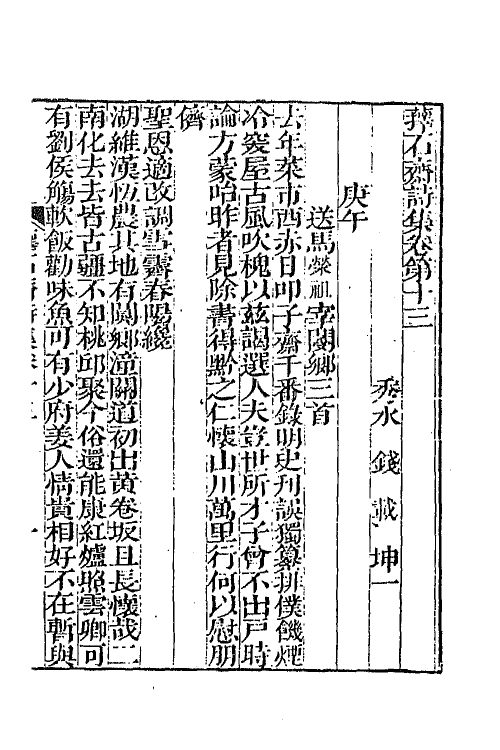 籜石齋詩集卷第十三
秀水　錢　載　坤一
庚午
送馬榮祖宰閿鄉三首
去年菜市西亦日叩子齋千番錄明史刊誤獨纂排僕饑煙
冷突屋古風吹槐以兹謁選人夫豈世所才子會不出戸時
論方蒙咍昨者見除書得黔之仁懷山川萬里行何以慰朋
儕
聖恩適改調雪霽春陽纔
湖維漢恆農其地有閿鄉潼關道初出黃卷坂且長懷哉二
南化去去皆古疆不知桃邱聚今俗還能康紅爐照雲卿可
有劉侯觴軟飯勸味魚可有少府姜人情貴相好不在暫與